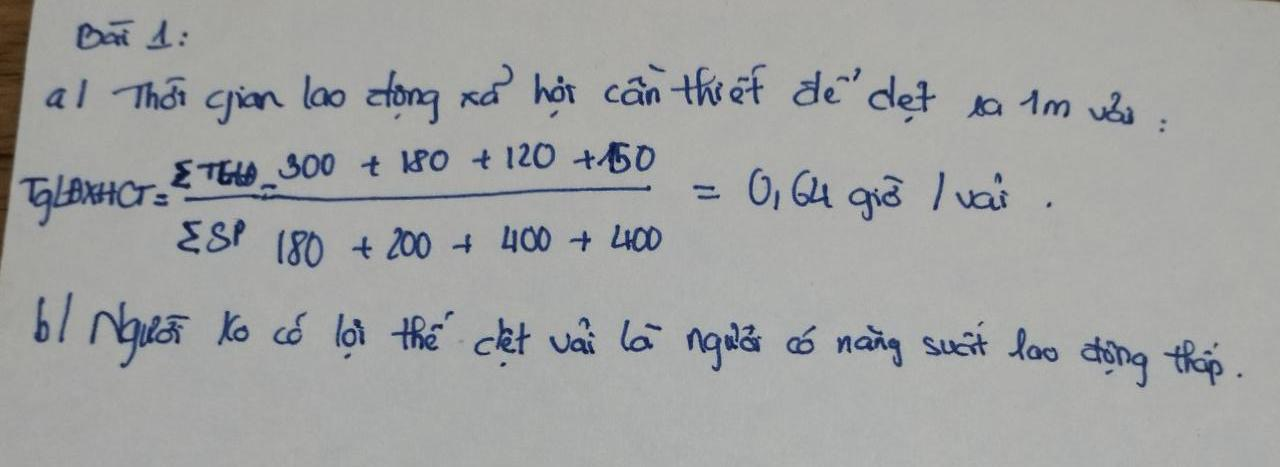 Bài 1:
a/ Thời gian lao động xã hội cần thiết để dệt ra 1m vải:
TgLĐXHCT = ΣTGLĐ = 300 + 180 + 120 + 150
ΣSP 180 + 200 + 400 + 400
= 0,64 giờ / vải.
b/ Người ko có lợi thế dệt vải là người có năng suất lao động thấp.